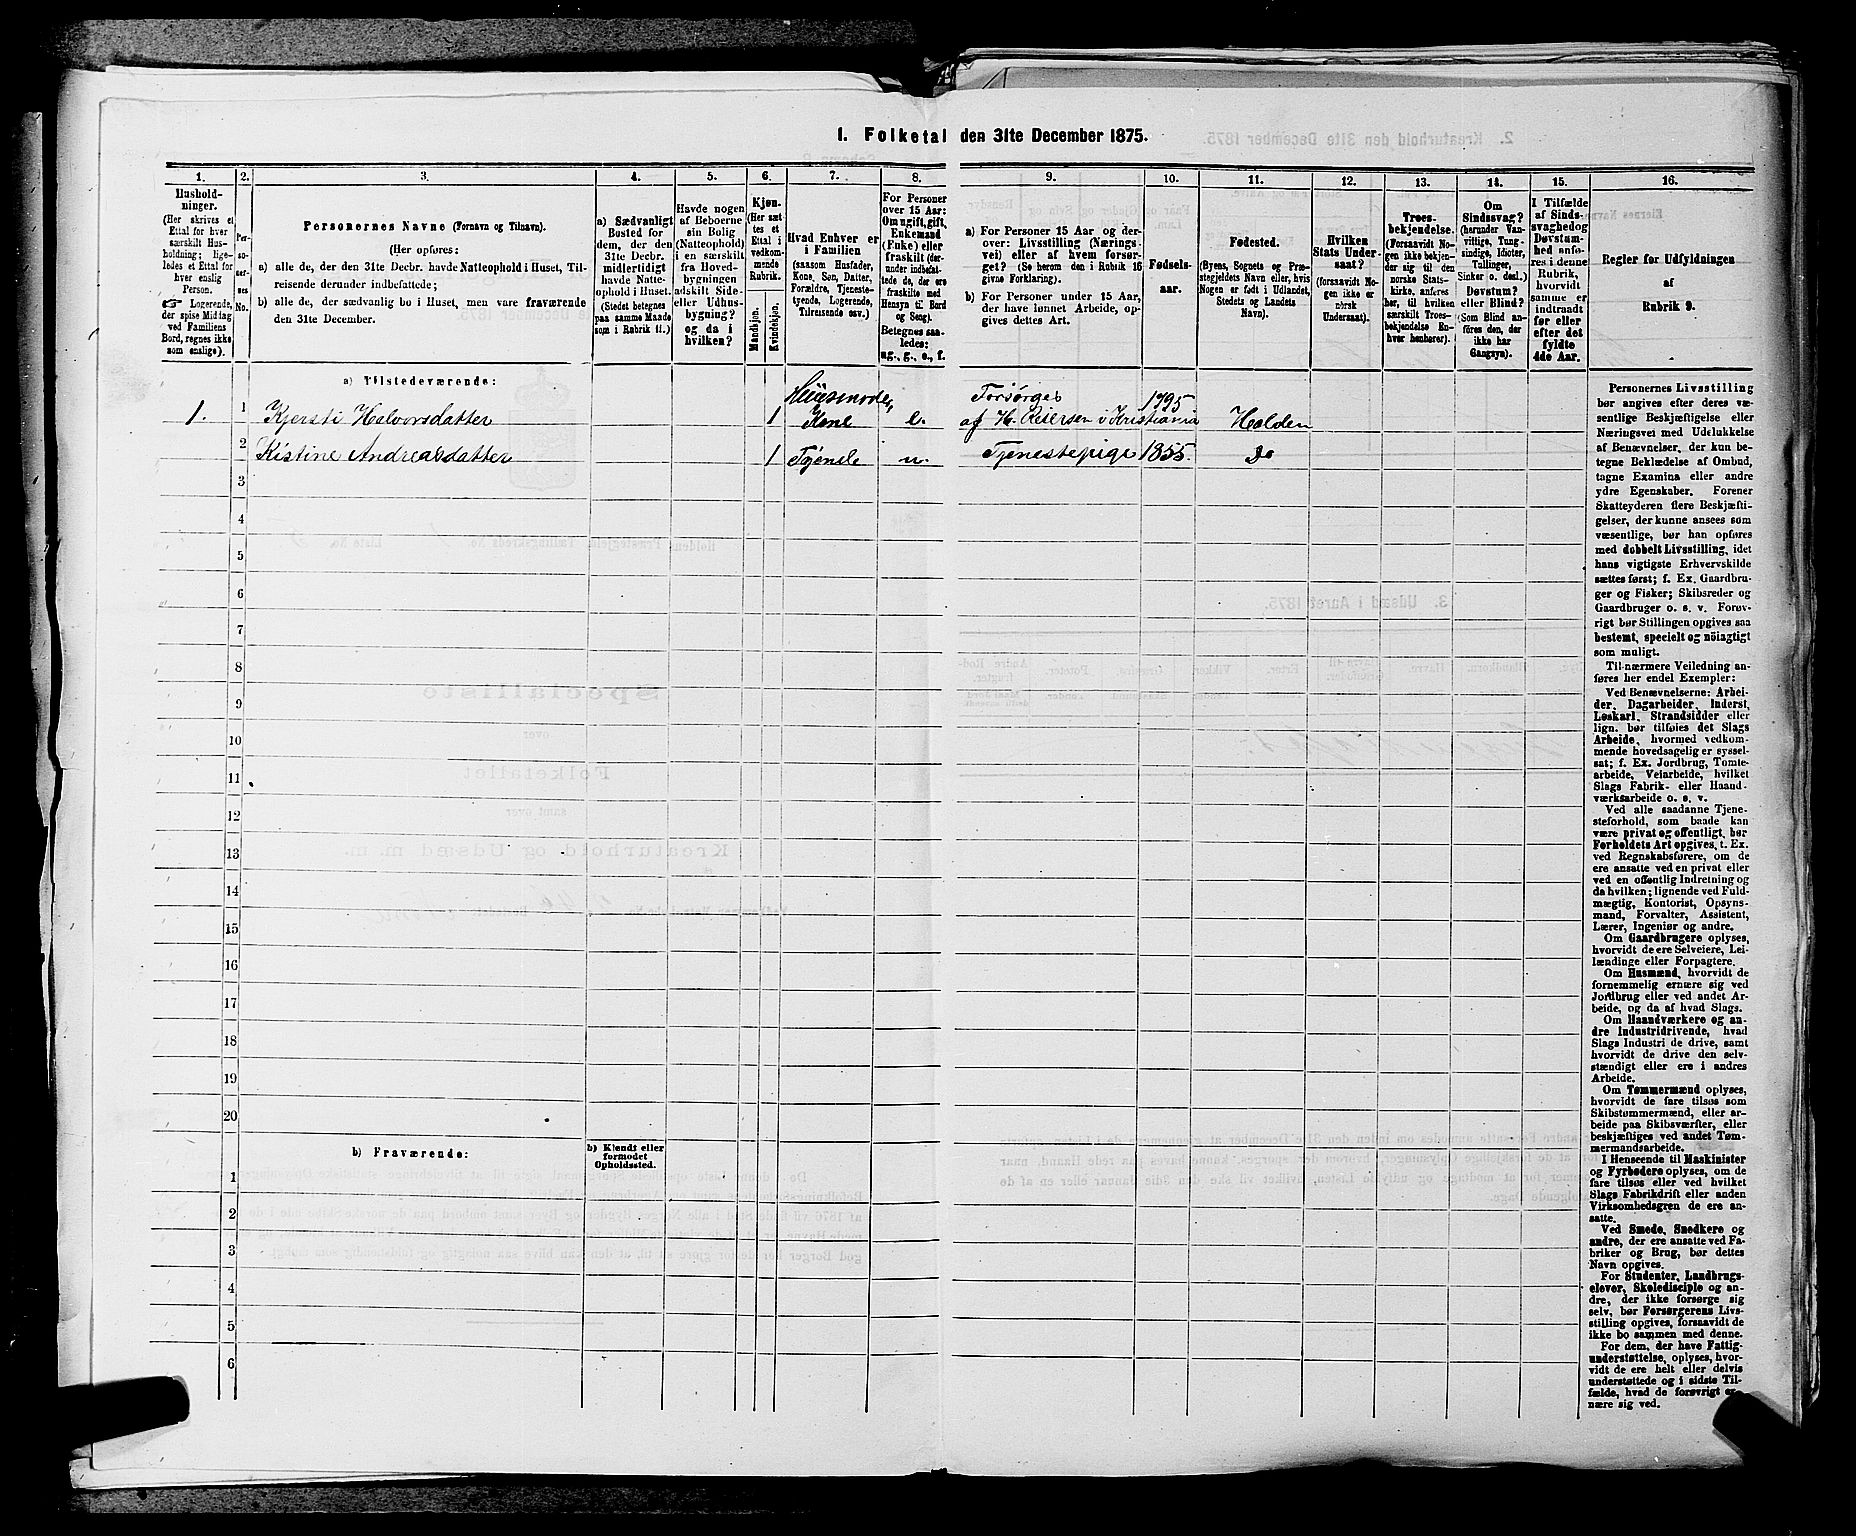 1. Folketal den 31te December 1875.
1.
2.
3.
4.
5.
6.
7.
8.
9.
10.
11.
12.
13.
14.
15.
16.
Hushold-
ninger.
(Her skrives et
Ettal for hver
særskilt Hus-
holdning; lige-
ledes et Ettal for
hver enslig
Person.
☞ Logerende,
der spise Middag
ved Familiens
Bord, regnes ikke
som enslige).
Per-
so-
ner-
nes
No.
Personernes Navne (Fornavn og Tilnavn).
(Her opføres:
a) alle de, der den 31te Decbr. havde Natteophold i Huset, Til-
reisende derunder indbefattede;
b) alle de, der sædvanlig bo i Huset, men vare fraværende
den 31te December.
a) Sædvanligt
Bosted for
dem, der den
31te Decbr.
midlertidigt
havde Natte-
ophold i Huset.
(Stedet betegnes
paa samme Maade
som i Rubrik 11.)
Havde nogen
af Beboerne
sin Bolig
(Natteophold)
i en særskilt
fra Hoved-
bygningen
adskilt Side-
eller Udhus-
bygning?
og da i
hvilken?
Kjøn.
(Her sæt-
tes et
Ettal i
vedkom-
mende
Rubrik.
Mandkjøn.
Kvindekjøn.
Hvad Enhver er
i Familien
(saasom Husfader,
Kone, Søn, Datter,
Forældre, Tjeneste-
tyende, Logerende,
Tilreisende osv.)
For Personer
over 15 Aar:
Om ugift, gift,
Enkemand
(Enke) eller
fraskilt (der-
under indbefat-
tede de, der ere
fraskilte med
Hensyn til Bord
og Seng).
Betegnes saa-
ledes:
ug., g., e., f.
a) For Personer 15 Aar og der-
over: Livsstilling (Nærings-
vei) eller af hvem forsør-
get? (Se herom den i Rubrik 16
givne Forklaring).
b) For Personer under 15 Aar,
der have lønnet Arbeide, op-
gives dettes Art.
Fødsels-
aar.
Fødested.
(Byens, Sognets og Præ-
stegjeldets Navn eller, hvis
Nogen er født i Udlandet,
Stedets og Landets
Navn).
Hvilken
Stats Under-
saat?
(forsaavidt No-
gen ikke er
norsk
Undersaat).
Troes-
bekjendelse.
(Forsaavidt No-
gen ikke bekjen-
der sig til den
norske Stats-
kirke, anføres
her, til hvilken
særskilt Troes-
bekjendelse En-
hver henhører).
Om
Sindssvag?
(herunder Van-
vittige, Tung-
sindige, Idioter,
Tullinger,
Sinker o. desl.).
Døvstum?
eller Blind?
(Som Blind an-
føres den, der
ikke har
Gangsyn).
I Tilfælde
af Sinds-
svaghed og
Døvstum-
hed anfø-
res i denne
Rubrik,
hvorvidt
samme er
indtraadt
før eller
efter det
fyldte
4de Aar.
Regler for Udfyldningen
af
Rubrik 9.
a) Tilstedeværende:
1. 1 Kjersti Halvorsdatter 1 Huusmoder, Kone e. Forsørges af H. Reiersen i Kristiania 1795 Holden
2 Kistine Andreasdatter 1 Tjenste u. Tjenestepige 1855. Do
3
4
5
6
7
8
9
10
11
12
13
14
15
16
17
18
19
20
b) Fraværende:
b) Kjendt eller
formodet
Opholdssted.
1
2
3
4
5
6
Personernes Livsstilling
bør angives efter deres væ-
sentlige Beskjæftigelse eller
Næringsvei med Udelukkelse
af Benævnelser, der kun be-
tegne Beklædelse af Ombud,
tagne Examina eller andre
ydre Egenskaber. Forener
Skatteyderen flere Beskjæfti-
gelser, der kunne ansees som
væsentlige, bør han opføres
med dobbelt Livsstilling, idet
hans vigtigste Erhvervskilde
sættes først; f. Ex. Gaardbru-
ger og Fisker; Skibsreder og
Gaardbruger o. s. v. Forøv-
rigt bør Stillingen opgives saa
bestemt, specielt og nöiagtigt
som muligt.
Til nærmere Veiledning an-
føres her endel Exempler:
Ved Benævnelserne: Arbei-
der, Dagarbeider, Inderst,
Løskarl, Strandsidder eller
lign. bør tilføies det Slags
Arbeide, hvormed vedkom-
mende hovedsagelig er syssel-
sat; f. Ex. Jordbrug, Tomte-
arbeide, Veiarbeide, hvilket
Slags Fabrik- eller Haand-
værksarbeide o. s. v.
Ved alle saadanne Tjene-
steforhold, som baade kan
være privat og offentligt, bør
Forholdets Art opgives, t. Ex.
ved Regnskabsførere, om de
ere ansatte ved en privat eller
ved en offentlig Indretning og
da hvilken; lignende ved Fuld-
mægtig, Kontorist, Opsyns-
mand, Forvalter, Assistent,
Lærer, Ingeniør og andre.
Om Gaardbrugere oplyses,
hvorvidt de ere Selveiere, Lei-
lændinge eller Forpagtere.
Om Husmænd, hvorvidt de
fornemmelig ernære sig ved
Jordbrug eller ved andet Ar-
beide, og da af hvad Slags.
Om Haandværkere og an-
dre Industridrivende, hvad
Slags Industri de drive, samt
hvorvidt de drive den selv-
stændigt eller ere i andres
Arbeide.
Om Tømmermænd oplyses,
hvorvidt de fare tilsøs som
Skibstømmermænd, eller ar-
beide paa Skibsværfter, eller
beskjæftiges ved andet Tøm-
mermandsarbeide.
I Henseende til Maskinister
og Fyrbødere oplyses, om de
fare tilsøs eller ved hvilket
Slags Fabrikdrift eller anden
Virksomhedsgren de ere an-
satte.
Ved Smede, Snedkere og
andre, der ere ansatte ved Fa-
briker og Brug, bør dettes
Navn opgives.
For Studenter, Landbrugs-
elever, Skoledisciple og an-
dre, der ikke forsørge sig
selv, bør Forsørgerens Livs-
stilling opgives, forsaavidt de
ikke bo sammen med denne.
For dem, der have Fattig-
understøttelse, oplyses, hvor-
vidt de ere helt eller delvis
understøttede og i sidste Til-
fælde, hvad de forøvrigt er-
nære sig ved.